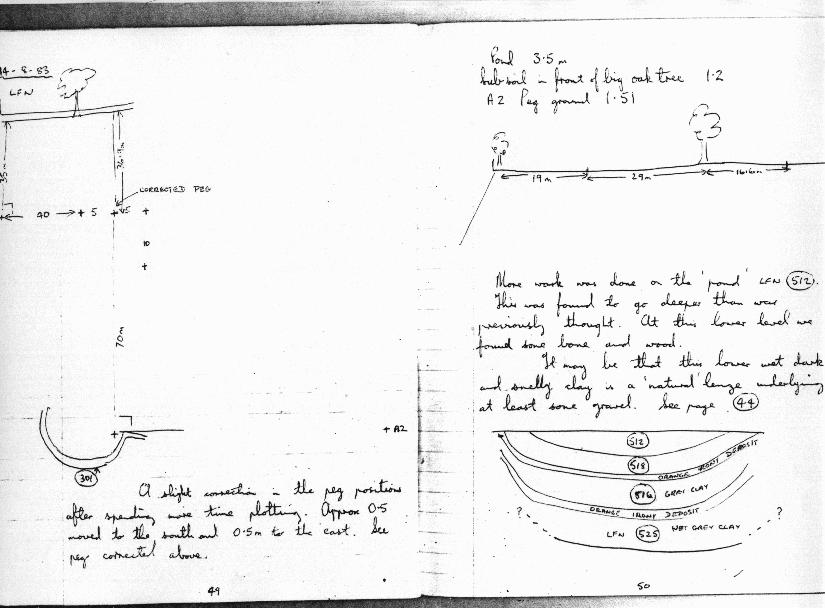 14-8-83
LFN
35m
36.9m
CORRECTED PEG
40
5
45
10
70m
A2
301
A slight correction in the peg positions
after spending more time plotting. Approx 0.5
moved to the south and 0.5m to the east. See
peg corrected above.
49
Pond 3.5m
Sub soil in front of big oak tree 1.2
A2 Peg ground 1.51
19m
29m
16.6m
More work was done on the 'pond' LFN 512.
This was found to go deeper than was
previously thought. At this lower level we
found some bone and wood.
It may be that this lower wet dark
and smelly clay is a 'natural' lenze underlying
at least some gravel. See page 44
512
518
ORANGE IRONY DEPOSIT
516 GREY CLAY
ORANGE IRONY DEPOSIT
? ?
LFN 525 WET GREY CLAY
50